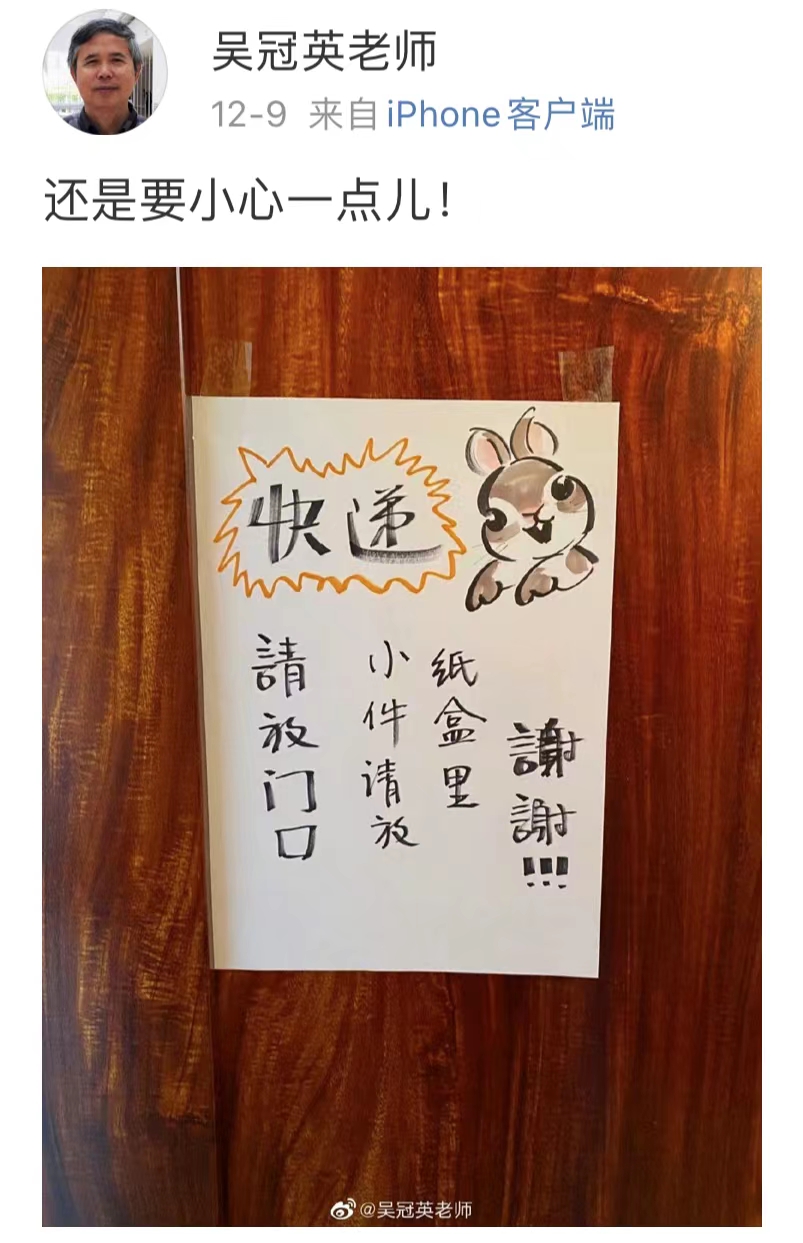 吴冠英老师
12-9 来自 iPhone客户端
还是要小心一点儿！
快递
請放门口
小件请放
纸盒里
謝謝!!!
@吴冠英老师